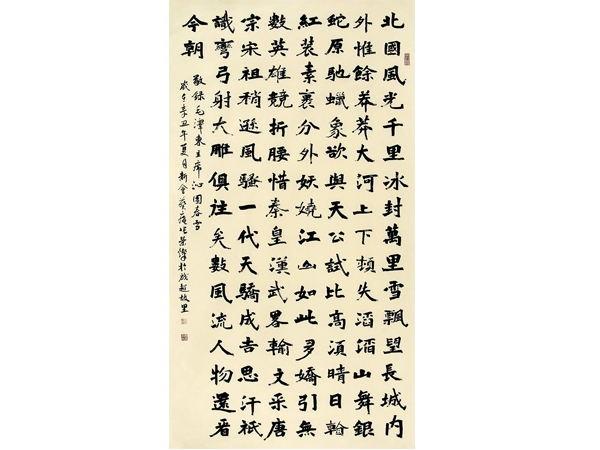 北國風光千里冰封萬里雪飄望長城內
外惟餘莽莽大河上下頓失滔滔山舞銀
蛇原馳蠟象欲與天公試比高須晴日看
紅裝素裹分外妖嬈江山如此多嬌引無
數英雄競折腰惜秦皇漢武畧輸文采唐
宗宋祖稍遜風騷一代天驕成吉思汗祇
識彎弓射大雕俱往矣數風流人物還看
今朝
敬錄毛澤東主席沁園春雪
歲在辛丑年夏月新會於啟超故里